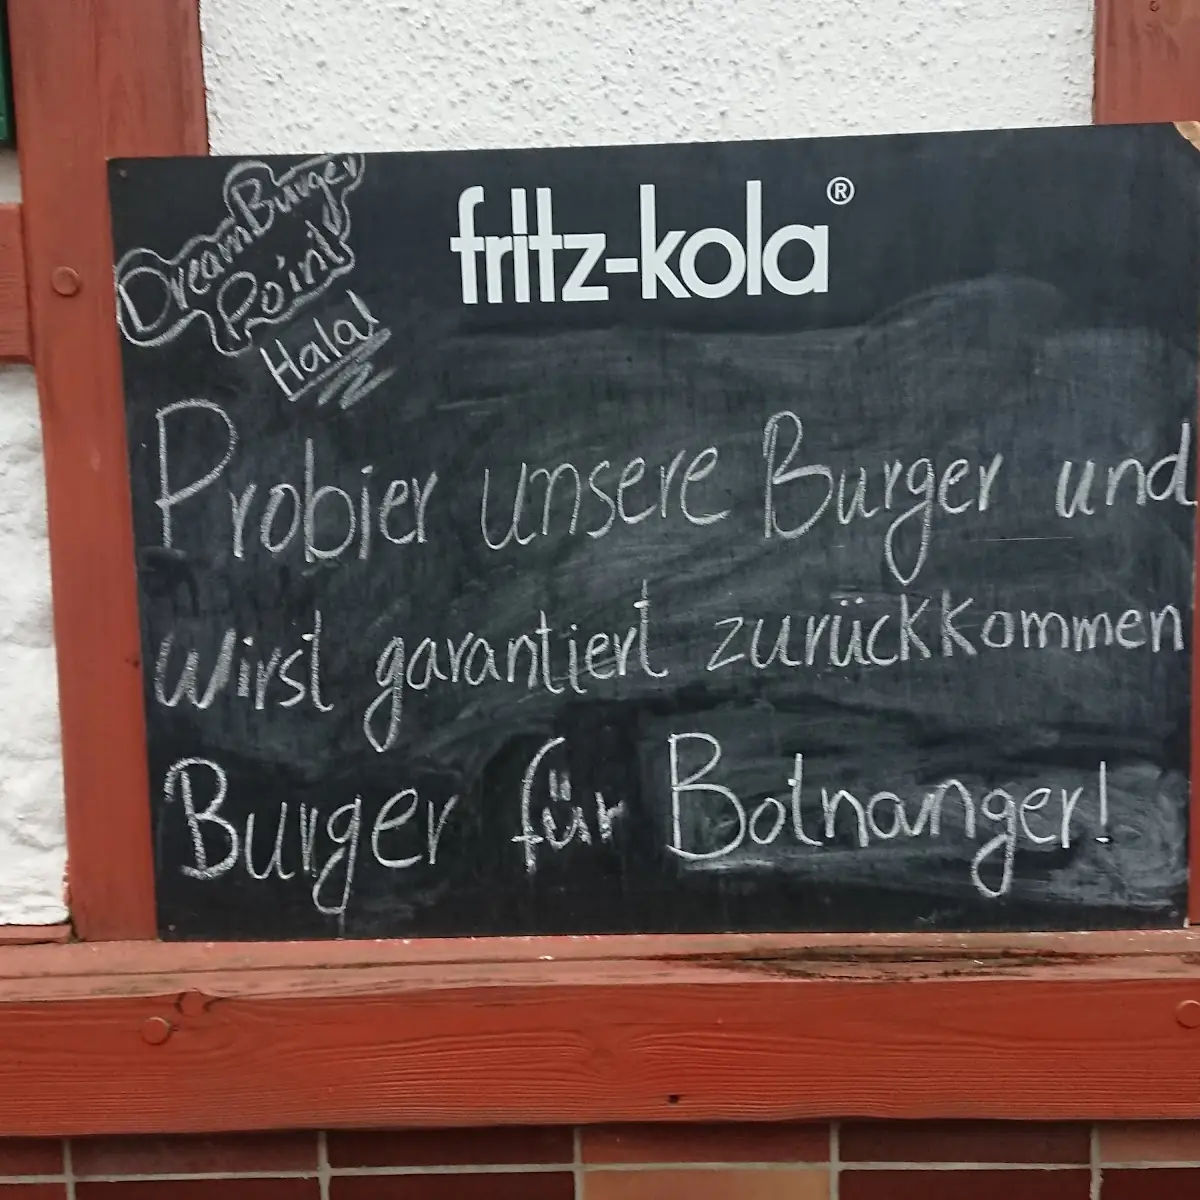 DreamBurger
Point
Halal
fritz-kola®
Probier unsere Burger und
wirst garantiert zurückkommen
Burger für Botnanger!